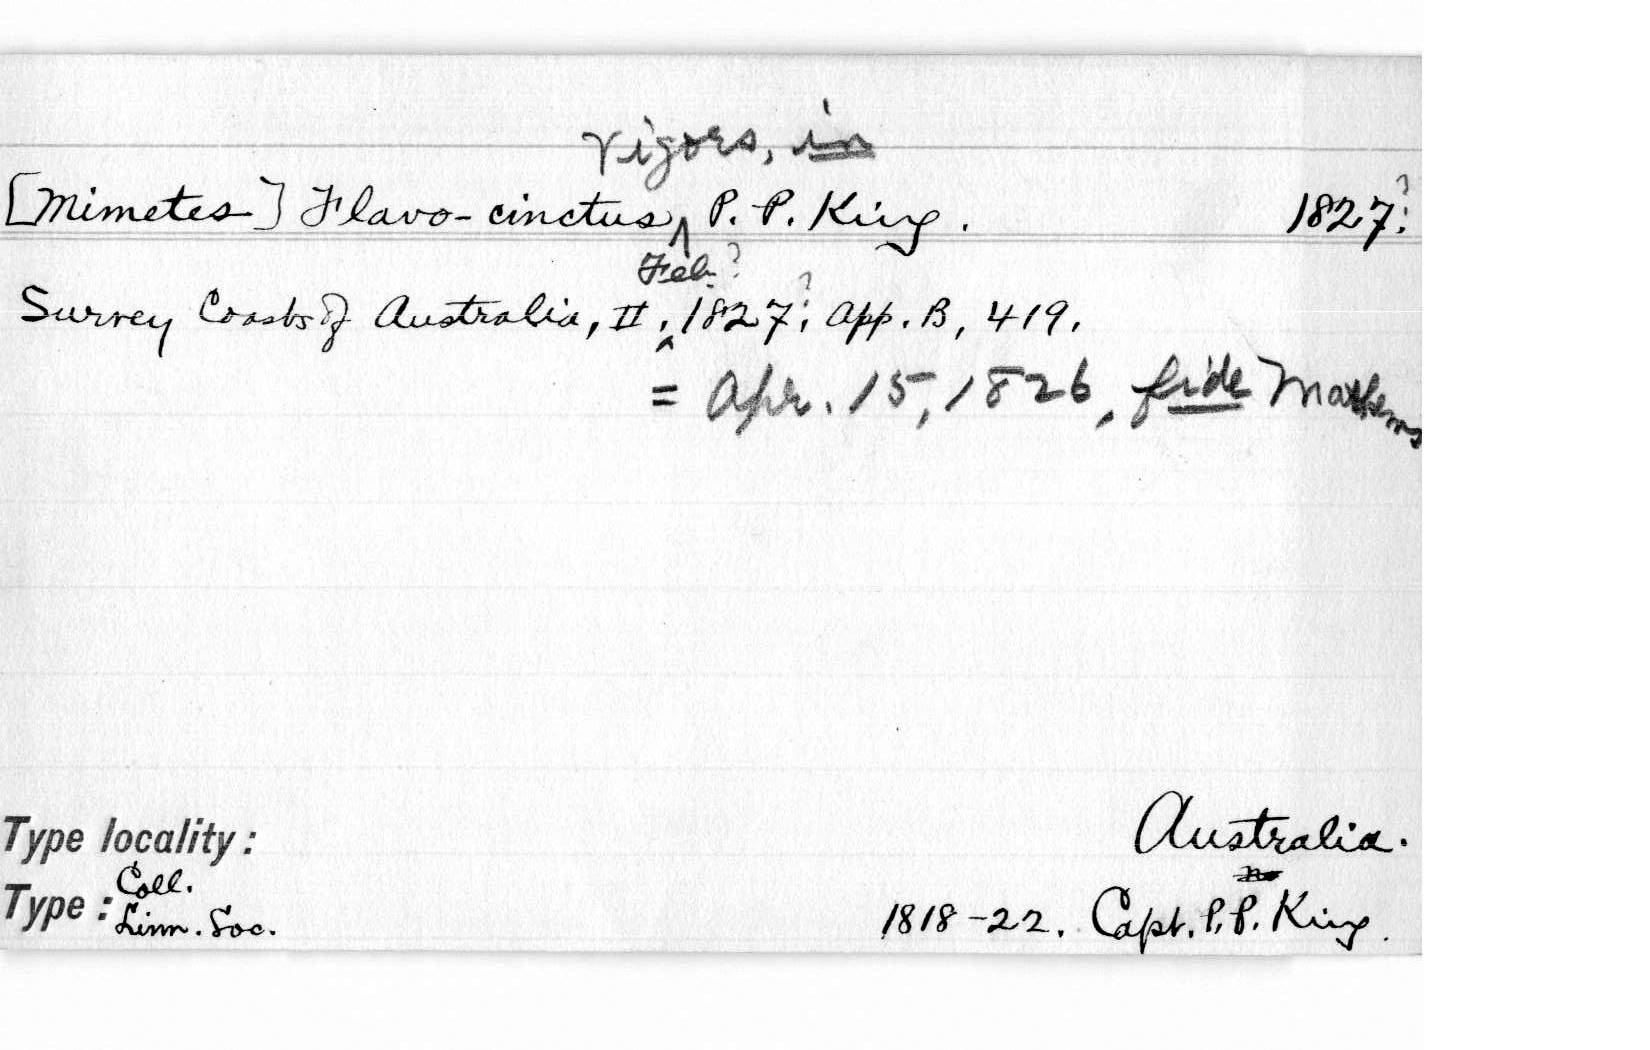 Vigors, in
[Mimetes] Flavo-cinctus, P. P. King. 1827?
Feb?
Survey Coasts of Australia, II, 1827? App. B, 419.
= Apr. 15, 1826, fide Mathews
Type locality: Australia.
Type: Coll.
Linn. Soc. 1818-22. Capt. P. P. King.